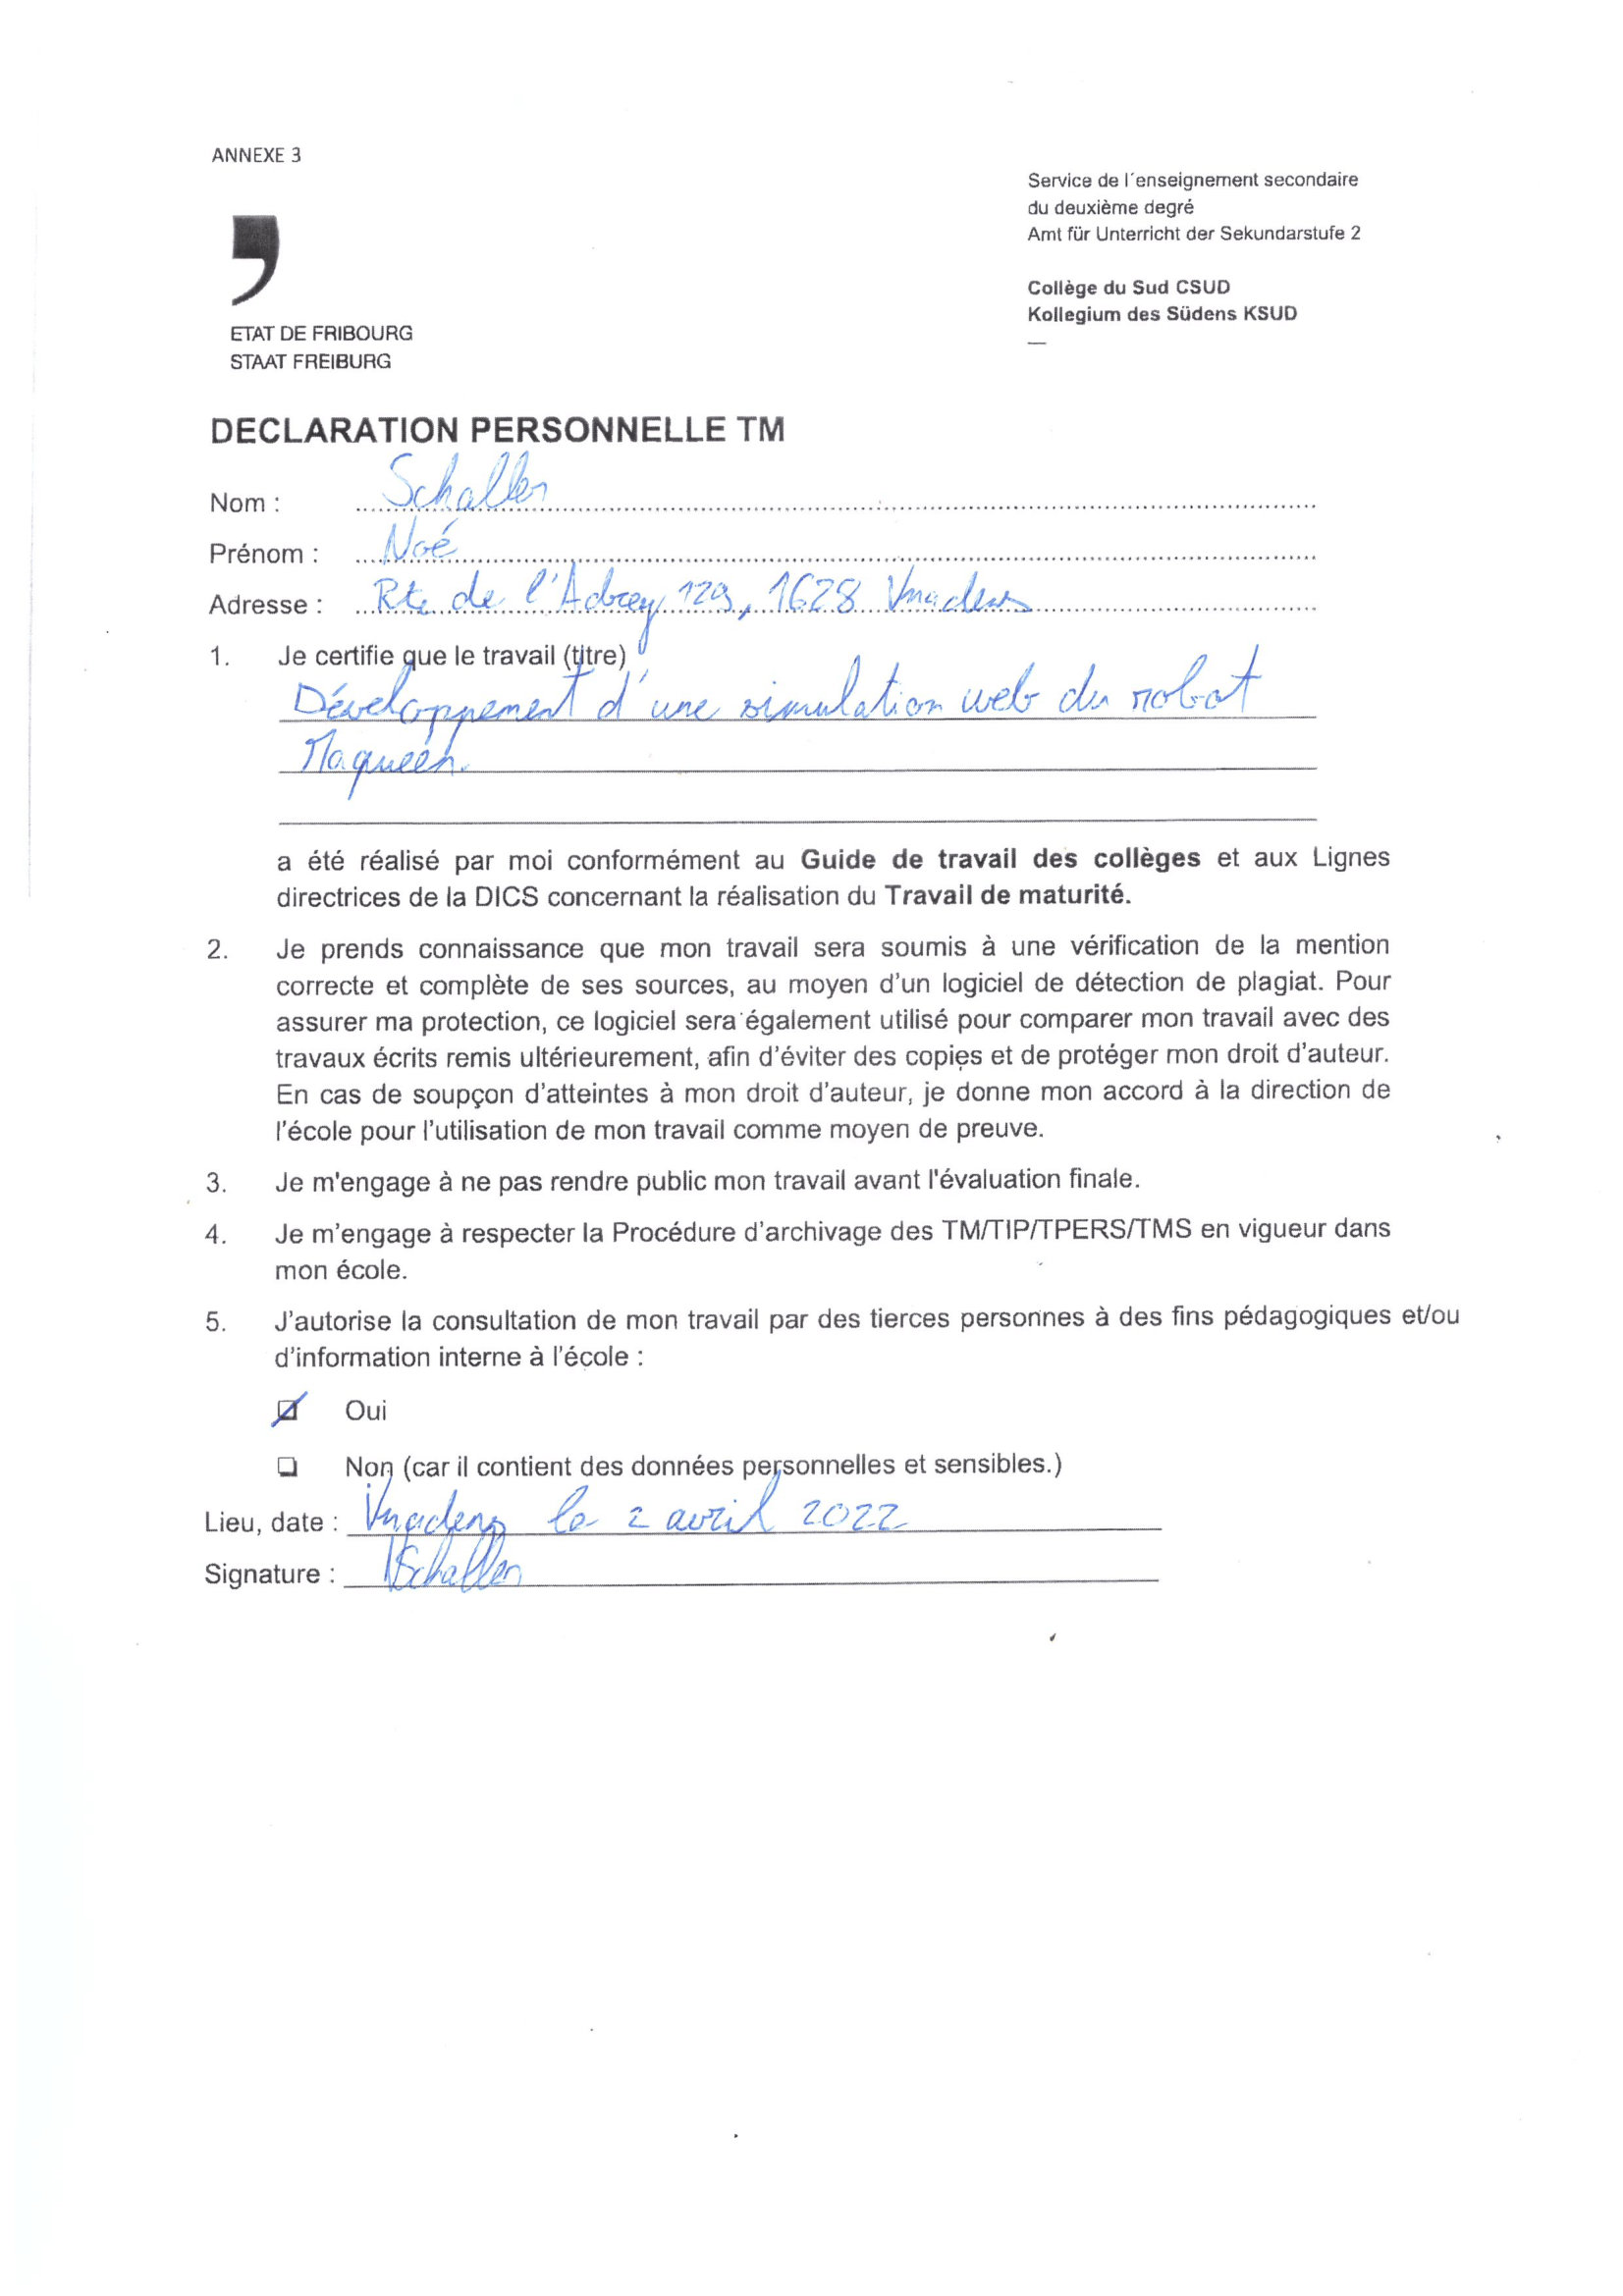 ANNEXE 3
Service de l´enseignement secondaire
du deuxième degré
Amt für Unterricht der Sekundarstufe 2
Collège du Sud CSUD
Kollegium des Südens KSUD
—
ETAT DE FRIBOURG
STAAT FREIBURG
DECLARATION PERSONNELLE TM
Nom : Schaller
Prénom : Noé
Adresse : Rte de l'Adrey 129, 1628 Vuadens
1. Je certifie que le travail (titre)
Développement d'une simulation web du robot
Maqueen.
a été réalisé par moi conformément au Guide de travail des collèges et aux Lignes
directrices de la DICS concernant la réalisation du Travail de maturité.
2. Je prends connaissance que mon travail sera soumis à une vérification de la mention
correcte et complète de ses sources, au moyen d'un logiciel de détection de plagiat. Pour
assurer ma protection, ce logiciel sera également utilisé pour comparer mon travail avec des
travaux écrits remis ultérieurement, afin d'éviter des copies et de protéger mon droit d'auteur.
En cas de soupçon d'atteintes à mon droit d'auteur, je donne mon accord à la direction de
l'école pour l'utilisation de mon travail comme moyen de preuve.
3. Je m'engage à ne pas rendre public mon travail avant l'évaluation finale.
4. Je m'engage à respecter la Procédure d'archivage des TM/TIP/TPERS/TMS en vigueur dans
mon école.
5. J'autorise la consultation de mon travail par des tierces personnes à des fins pédagogiques et/ou
d'information interne à l'école :
Oui
Non (car il contient des données personnelles et sensibles.)
Lieu, date : Vuadens le 2 avril 2022
Signature : NSchaller